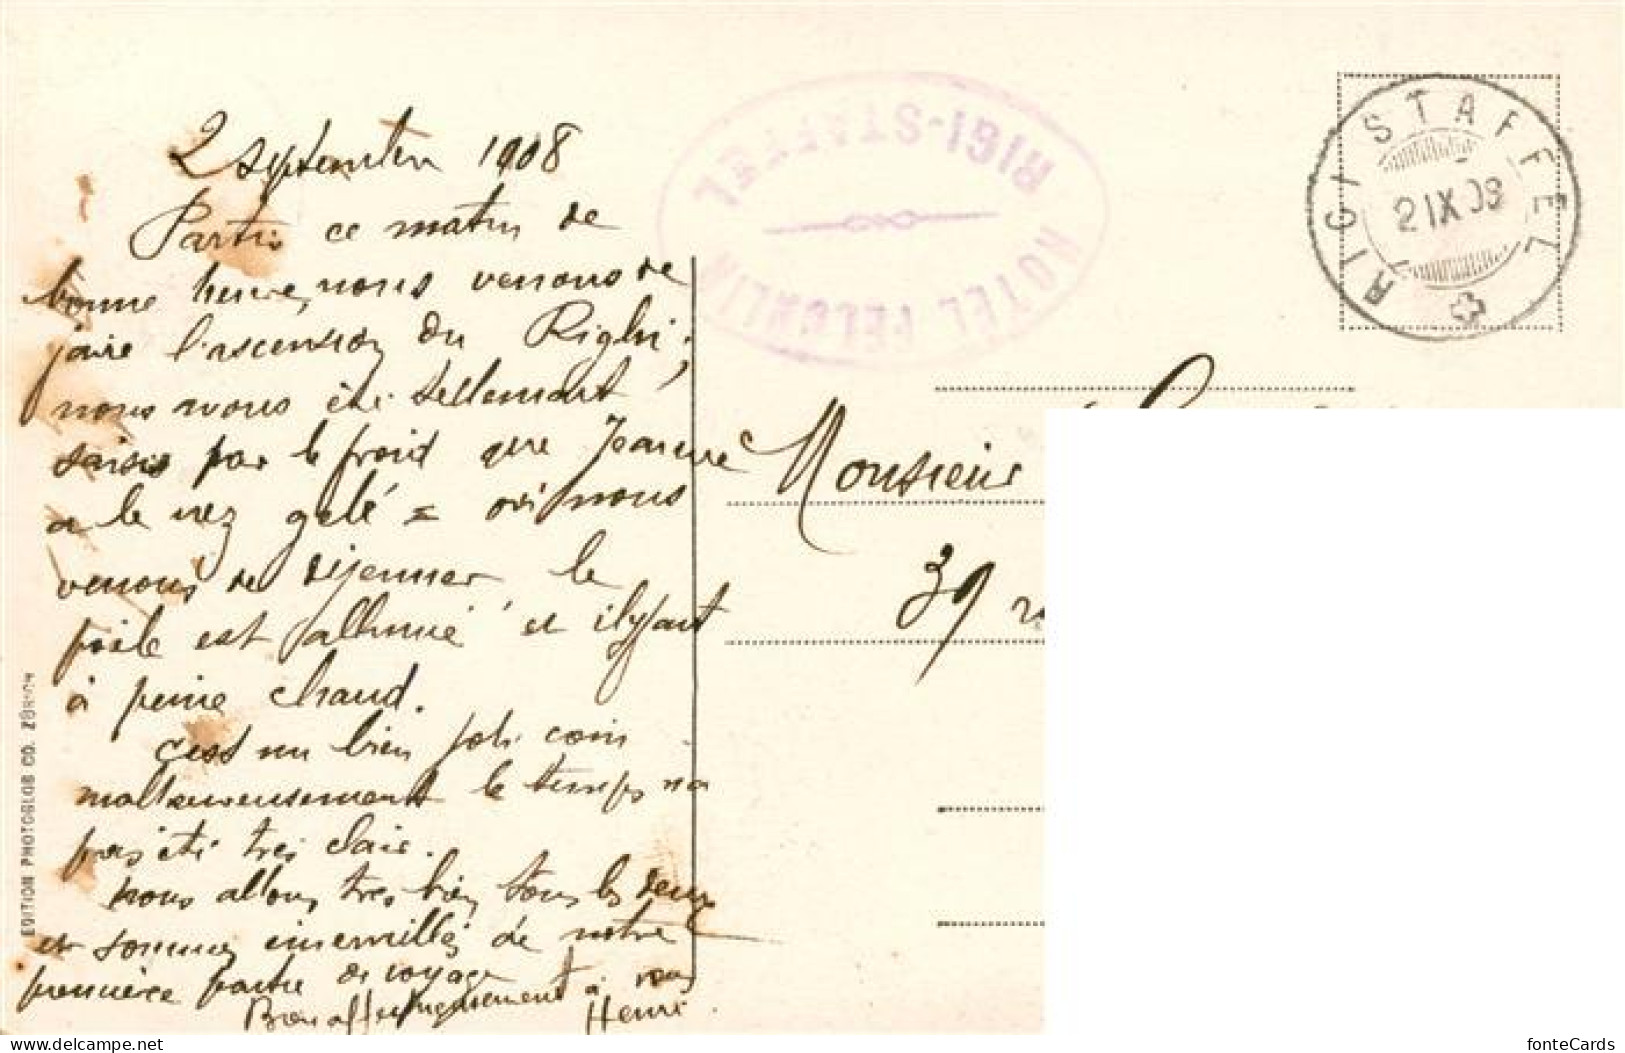 2 septembre 1908
Partis ce matin de
bonne heure, nous venons de
faire l'ascension du Righi;
nous avons été tellement
saisis par le froid que Jeanne
a le nez gelé = où nous
venons de déjeuner le
poile est allumé et il y fait
à peine chaud.
C'est un bien joli coin
malheureusement le temps n'a
pas été très clair.
Nous allons très bien tous les deux
et sommes émerveillés de notre
première partie de voyage
Bien affectueusement à vous
Henri
HOTEL FELCHLIN
RIGI-STAFFEL
RIGI STAFFEL
2 IX 08
Monsieur
39
EDITION PHOTOGLOB CO. ZÜRICH
delcampe.net
fonteCards